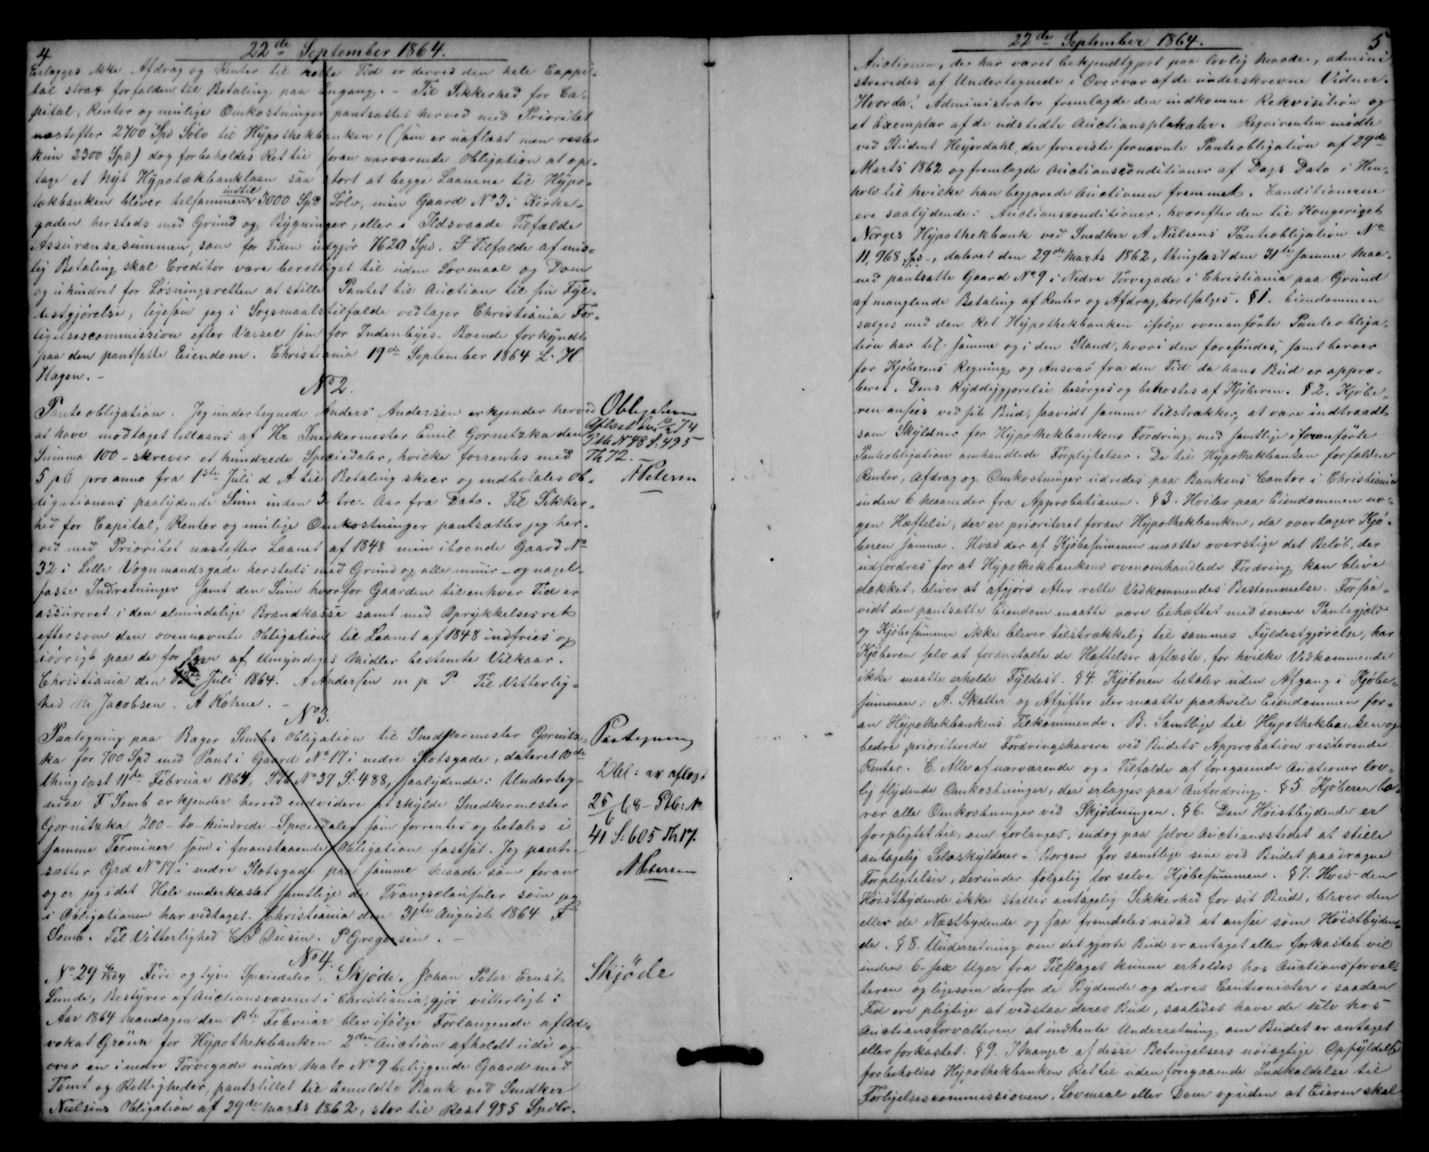 4
22de September 1864.
erlægges ikke Afdrag og Renter til rette Tid er derved den hele Cappi-
tal strax forfalden til Betaling paa Engang. - Til Sikkerhed for Ca-
pital, Renter og mulige Omkostninger pantsættes herved med Prioritet
næstefter 2700 Spd Sølv til Hypothekbanken, (hvor er uaflæst men rester
kun 2300 Spd) dog forbeholdes Ret til foran nærværende Obligation at op-
tage et nyt Hypothekbanklaan saa stort at begge Laanene til Hypo-
thekbanken bliver tilsammen indtil 3000 Spd Sølv, min Gaard No 3 i Kirke-
gaden hersteds med Grund og Bygninger, eller i Ildsvaade Tilfælde
Assurancesummen, som for Tiden udgjør 7620 Spd. I Tilfælde af mis-
lig Betaling skal Creditor være berettiget til uden Lovmaal og Dom
og uhindret for Løsningsretten at stille Pantet til Auction til sin Fyl-
destgjørelse, ligesom jeg i Søgsmaalstilfælde vedtager Christiania For-
ligelsescommission efter Varsel som for Indenbyes-Boende forkyndt
paa den pantsatte Eiendom. Christiania 19de September 1864 L. H
Hagen. -
No 2.
Panteobligation. Jeg undertegnede Anders Andersen erkjender herved
at have modtaget tillaans af Hr. Snedkermester Emil Gornitzka den
Summa 100 - skriver et hundrede Speciedaler, hvilke forrentes med
5 p C pro anno fra 1ste Juli d A til Betaling skeer og indbetales Ob-
ligationens paalydende Sum inden 3 tre Aar fra Dato. Til Sikker-
hed for Capital, Renter og mulige Omkostninger pantsætter jeg her-
ved med Prioritet næstefter Laanet af 1848 min iboende Gaard No
32 i Lille Vognmandsgade hersteds med Grund og alle muur- og nagel-
faste Indretninger samt den Sum hvorfor Gaarden til enhver Tid er
assureret i den almindelige Brandkasse samt med Oprykkelsesret
eftersom den ovennævnte Obligation til Laanet af 1848 indfries og
iøvrigt paa de for Laan af Umyndiges Midler bestemte Vilkaar.
Christiania den Juli 1864. A Andersen m p P. Til Vitterlig-
hed M Jacobsen. A Köhne. -
Obligation
aflæst
Ptb. N 48 S. 495
Th 72.
N Petersen
No 3.
Paategning paa Bager Sembs Obligation til Snedkermester Gornitz-
ka for 700 Spd med Pant i Gaard No 17 i nedre Slotsgade, dateret 10de
thinglæst 11de Februar 1864, Ptb No 37 S. 488, saalydende: Underteg-
nede F Semb erkjender herved endvidere at skylde Snedkermester
Gornitzka 200 - to hundrede - Speciedaler som forrentes og betales i
samme Terminer som i foranstaaende Obligation fastsat. Jeg pant-
sætter Grd No 17 i nedre Slotsgade paa samme Maade som foran
og er jeg i det Hele underkastet samtlige de Tvangsclausuler som jeg
i Obligationen har vedtaget. Christiania den 31te August 1864 F
Semb. Til Vitterlighed P Gregersen. -
Paategning
Dbl: er aflæst
25/6 68 - Ptb: No
41 S. 605 Th 17.
N Petersen
No 4.
No 29 Fire og tyve Speciedaler. Skjøde. Johan Peter Ernst
Lunde, Bestyrer af Auctionsvæsenet i Christiania, gjør vitterligt:
Aar 1864 Mandagen den 1ste Februar blev ifølge Forlangende af Ad-
vokat Grønn for Hypothekbanken 2den Auction afholdt udi og
over en i nedre Torvegade under Matr No 9 beliggende Gaard med
Tomt og Rettigheder, pantstillet til bemeldte Bank ved Snedker
Nielsens Obligation af 29de Marts 1862, stor til Rest 985 Spdlr.
Skjøde
22de September 1864.
5
Auctionen, der har været bekjendtgjort paa lovlig Maade, admini-
streredes af Undertegnede i Overvær af de underskrevne Vidner.
Hvorda. Administrator fremlagde den indkomne Rekvisition og
et Exemplar af de udstedte Auctionsplakater. Rekvirenten mødte
ved Student Heyerdahl, der foreviste fornævnte Panteobligation af 29de
Marts 1862 og fremlagde Auctionsconditioner af Dags Dato i Hen-
hold til hvilke han begjærede Auctionen fremmet. Conditionerne
ere saalydende: Auctionsconditioner, hvorefter den til Kongeriget
Norges Hypothekbank ved Snedker A Nielsens Panteobligation No
11,968 Spc, dateret den 29de Marts 1862, thinglæst den 31te samme Maa-
ned pantsatte Gaard No 9 i Nedre Torvegade i Christiania paa Grund
af manglende Betaling af Renter og Afdrag, bortsælges. § 1. Eiendommen
sælges med den Ret Hypothekbanken ifølge ovenanførte Panteobliga-
tion har til samme og i den Stand, hvori den forefindes, samt beroer
for Kjøberens Regning og Ansvar fra den Tid da hans Bud er appro-
beret. Dens Ryddiggjørelse besørges og bekostes af Kjøberen. § 2. Kjøbe-
ren ansees ved sit Bud, saavidt samme tilstrækker, at være indtraadt
som Skyldner for Hypothekbankens Fordring med samtlige i foranførte
Panteobligation omhandlede Forpligtelser. De til Hypothekbanken forfaldne
Renter, Afdrag og Omkostninger udredes paa Bankens Contor i Christiania
inden 6 Maaneder fra Approbationen. § 3. Hviler paa Eiendommen no-
gen Hæftelse, der er prioriteret foran Hypothekbanken, da overtager Kjø-
beren samme. Hvad der af Kjøbesummen maatte overstige det Beløb, der
udfordres for at Hypothekbankens ovenomhandlede Fordring kan blive
dækket, bliver at afgjøre efter rette Vedkommendes Bestemmelse. Forsaa-
vidt den pantsatte Eiendom maatte være behæftet med senere Pantegjæld
og Kjøbesummen ikke bliver tilstrækkelig til sammes Fyldestgjørelse, har
Kjøberen selv at foranstalte de Hæftelser aflæste, for hvilke Vedkommende
ikke maatte erholde Fyldest. § 4 Kjøberen betaler uden Afgang i Kjøbe-
summen: A. Skatter og Afgifter der maatte paahvile Eiendommen for-
an Hypothekbankens Tilkommende. B. Samtlige til Hypothekbanken og
bedre prioriterede Fordringshavere ved Budets Approbation resterende
Renter. C. Alle af nærværende og i Tilfælde af foregaaende Auctioner lov-
lig flydende Omkostninger, der erlægges paa Anfordring. § 5. Kjøberen bæ-
rer alle Omkostninger ved Skjødningen. § 6. Den Høistbydende er
forpligtet til, om forlanges, endog paa selve Auctionsstedet at stille
antagelig Selvskyldner-Borgen for samtlige sine ved Budet paadragne
Forpligtelser, derunder følgelig for selve Kjøbesummen. § 7. Hvis den
Høistbydende ikke stiller antagelig Sikkerhed for sit Bud, bliver den
eller de Næstbydende og saa fremdeles nedad at ansee som Høistbyden-
de. § 8. Underretning om det gjorte Bud er antaget eller forkastet vil
inden 6 - sex Uger fra Tilslaget kunne erholdes hos Auctionsforval-
teren og ligesom derfor de Bydende og deres Cautionister i saadan
Tid ere pligtige at vedstaa deres Bud, saaledes have de selv hos
Auctionsforvalteren at indhente Underretning, om Budet er antaget
eller forkastet. § 9. I Mangel af disse Betingelsers nøiagtige Opfyldelse
forbeholdes Hypothekbanken Ret til uden foregaaende Indkaldelse til
Forligelsescommissionen, Lovmaal eller Dom og uden at Eieren skal